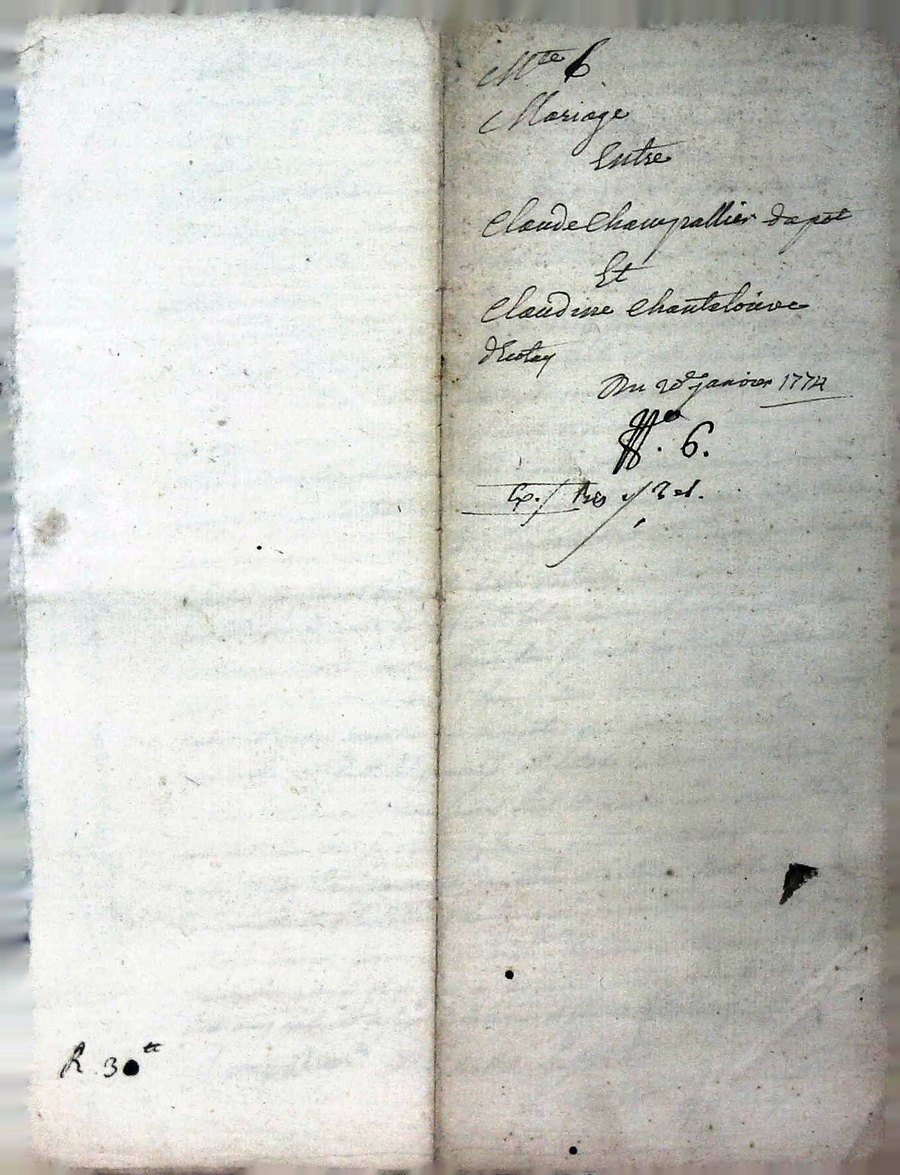 Mte 6
Mariage
Entre
Claude Champallier dapt
Et
Claudine Chantelouve
d'Ecotay
Du 20e janvier 1774
No. 6.
R. 30tt